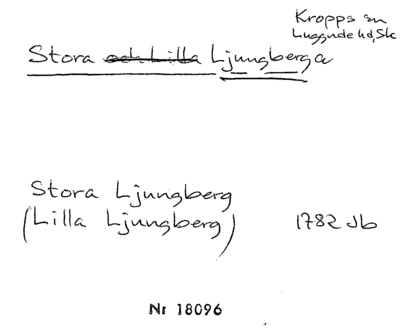 Kropps sn
Luggude hd, Sk
Stora och Lilla Ljungberga
Stora Ljungberg
(Lilla Ljungberg)
1782 Jb
Nr 18096